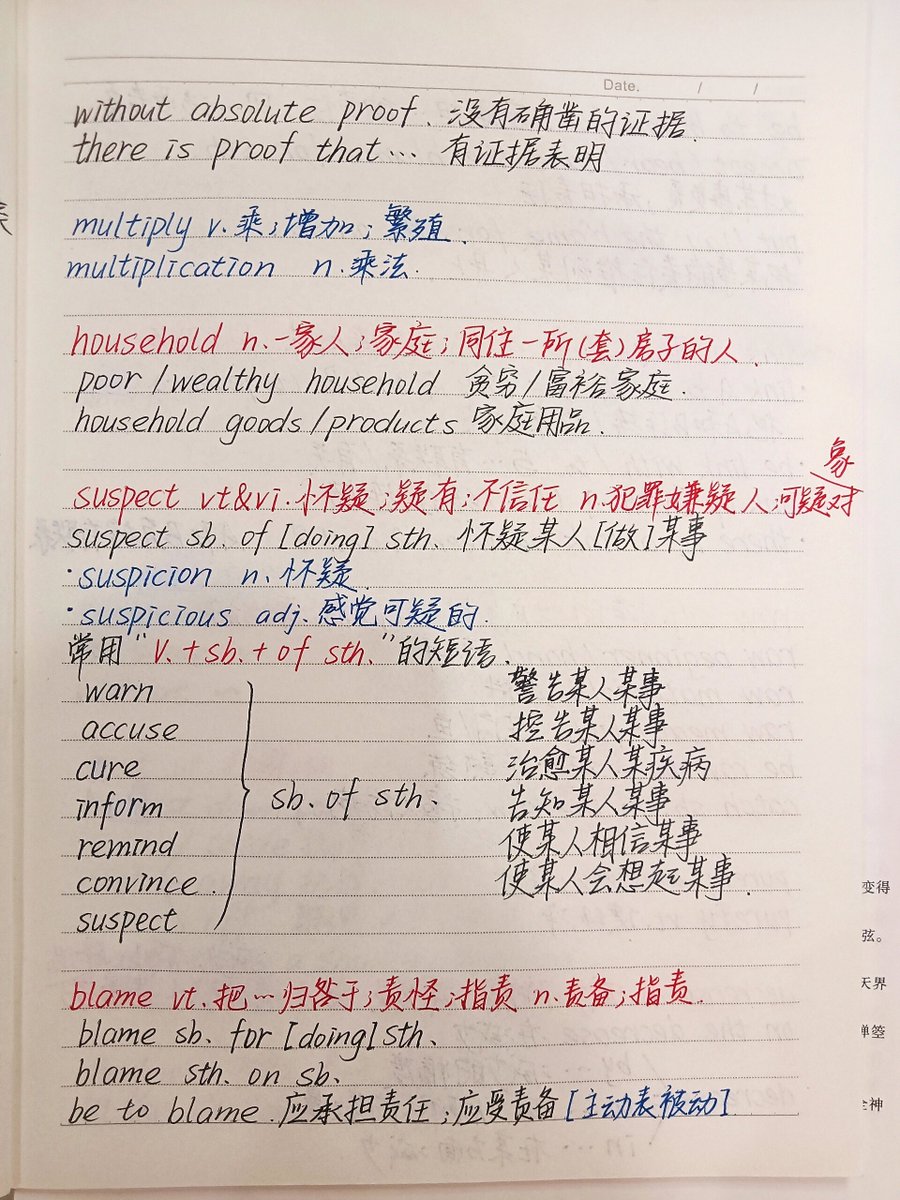 Date. / /
without absolute proof. 没有确凿的证据.
there is proof that… 有证据表明
multiply v.乘;增加;繁殖.
multiplication n.乘法.
household n.一家人;家庭;同住一所(套)房子的人.
poor/wealthy household 贫穷/富裕家庭.
household goods/products 家庭用品.
suspect vt&vi.怀疑;疑有;不信任 n.犯罪嫌疑人;可疑对象
suspect sb. of [doing] sth. 怀疑某人[做]某事
·suspicion n.怀疑.
·suspicious adj.感觉可疑的.
常用"V.+sb.+of sth."的短语.
warn 警告某人某事
accuse 控告某人某事
cure 治愈某人某疾病
inform sb. of sth. 告知某人某事
remind 使某人相信某事
convince. 使某人会想起某事.
suspect
blame vt.把…归咎于;责怪;指责 n.责备;指责.
blame sb. for [doing]sth.
blame sth. on sb.
be to blame.应承担责任;应受责备[主动表被动]
变得
弦。
天界
弹箜
神